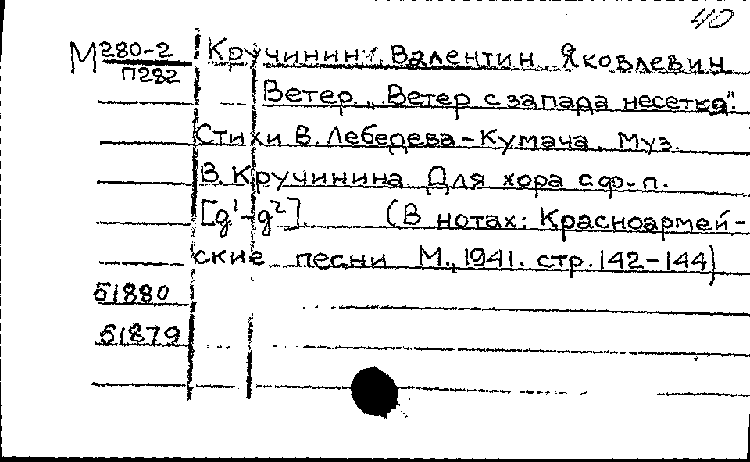 40
М 280-2 Кручинин, Валентин Яковлевич
П282
Ветер „Ветер с запада несетка".
Стихи В. Лебедева-Кумача. Муз.
В. Кручинина Для хора с ф-п.
[g¹-g²] (В нотах: Красноармей-
ские песни М., 1941. стр. 142-144)
51880
51879